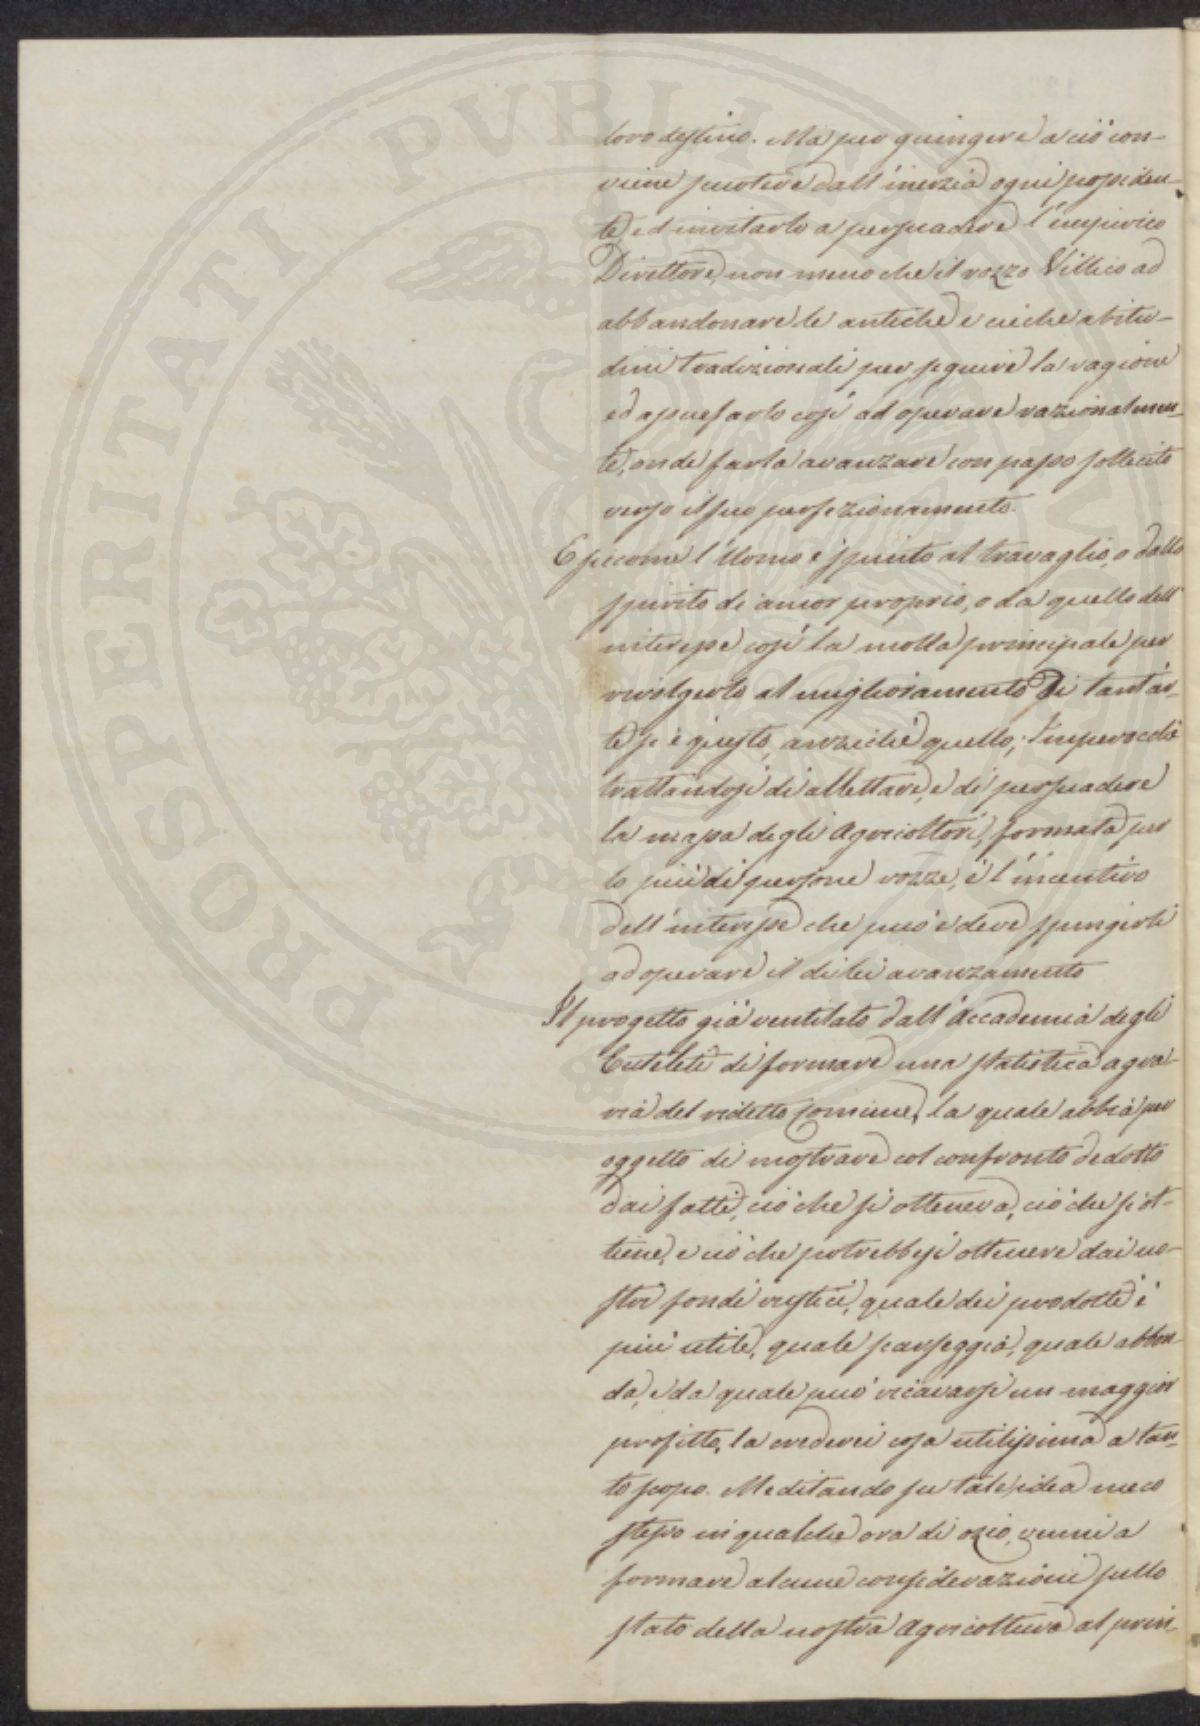 PROSPERITATI PUBLICAE AUGENDAE
loro destino. Ma per giungere a ciò con-
viene scuotere dall'inerzia ogni possiden-
te ed invitarlo a persuadere l'empirico
Direttore, non meno che il rozzo Villico ad
abbandonare le antiche e cieche abitu-
dini tradizionali per seguire la ragione
ed assuefarlo così ad operare razionalmen-
te, onde farla avanzare con passo sollecito
verso il suo perfezionamento.
E siccome l'Uomo è spinto al travaglio, o dallo
spirito di amor proprio, o da quello dell'
interesse così la molla principale per
rivolgerlo al miglioramento di tant'ar-
te si è questo, anziché quello; Imperocché
trattandosi di allettare, e di persuadere
la massa degli Agricoltori, formata per
lo più di persone rozze, è l'incentivo
dell'interesse che può e deve spingerli
ad operare il di lei avanzamento
Il progetto già ventilato dall'Accademia degli
Euteleti di formare una statistica agra-
ria del ridetto Comune, la quale abbia per
oggetto di mostrare col confronto dedotto
dai fatti, ciò che si otteneva, ciò che si ot-
tiene, e ciò che potrebbesi ottenere dai no-
stri fondi rustici, quale dei prodotti è
più utile, quale scarseggia, quale abbon-
da, e da quale può ricavarsi un maggior
profitto, la crederei cosa utilissima a tan-
to scopo. Meditando su tale idea meco
stesso in qualche ora di ozio, venni a
formare alcune considerazioni sullo
stato della nostra Agricoltura al prin-